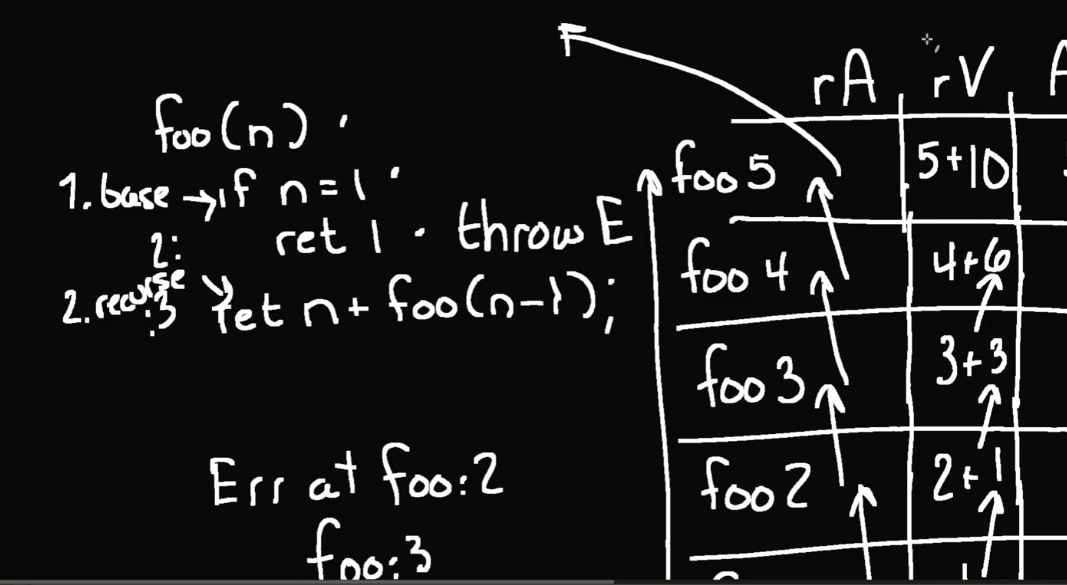 foo(n)
1. base → if n = 1
2: ret 1 · throw E
2. recurse :3 ret n + foo(n-1);
Err at foo:2
foo:3
rA rV A
foo 5 5+10
foo 4 4+6
foo 3 3+3
foo 2 2+1